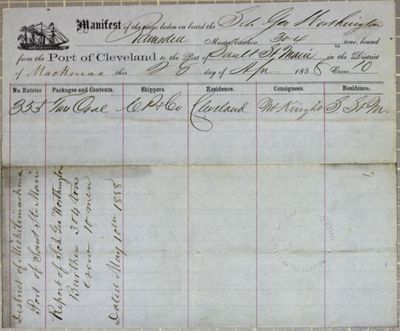 Manifest of the cargo laden on board the Sch Geo Worthington
Ramsdell Master, burthen 304 tons, bound
from the Port of Cleveland to the Port of Sault St Marie in the District
of Mackinac this 28 day of Apr 1858 Crew, 10
No. Entries Packages and Contents. Shippers. Residence. Consignees. Residence.
355 Tons Coal Cleveland McKnight S. St M.
District of Michilimackinac
Port of Saut Ste Marie
Report of Sch Geo Worthington
Burthen 304 tons
crew 10 men
Dated May 10th 1858